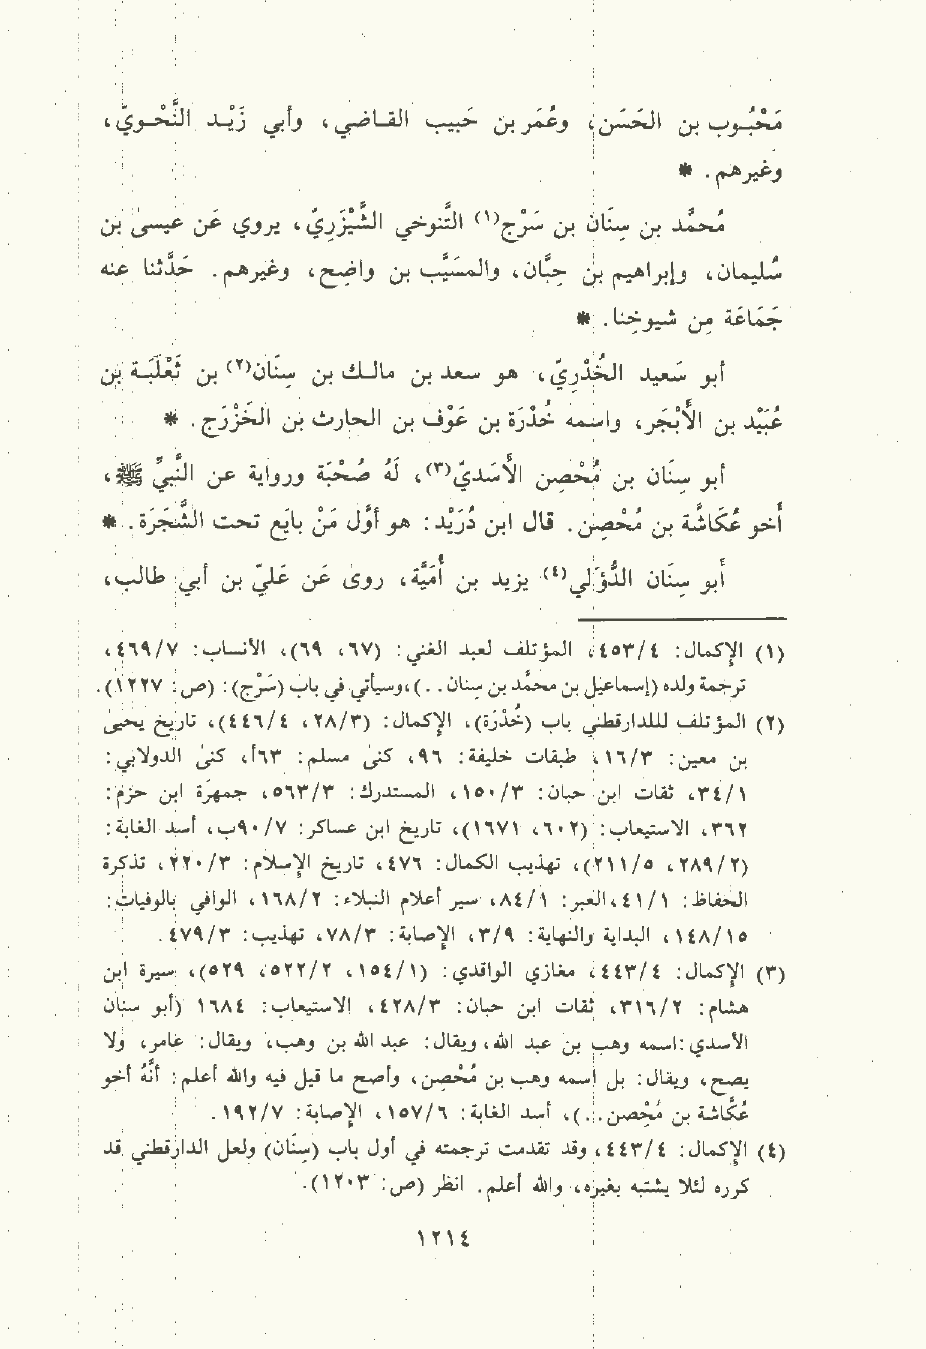 مَحْبُـوب بن الحَسَن، وعُمَر بن حَبيب القـاضي، وأبي زَيْـد النَّحْـويّ،
وغيرهم. *
مُحمَّد بن سِنَان بن سَرْج(١) التَّنوخي الشَّيْزَرِيّ، يروي عَن عيسىٰ بن
سُليمان، وإبراهيم بن حِبَّان، والمسَيَّب بن واضِح، وغيرهم. حَدَّثنا عنه
جَمَاعَة مِن شيوخِنا. *
أبو سَعيد الخُدْرِيّ، هو سعد بن مالـك بن سِنَان(٢) بن ثَعْلَبَـة بن
عُبَيْد بن الأَبْجَر، واسمه خُدْرَة بن عَوْف بن الحارث بن الخَزْرَج. *
أبو سَنِان بن مُحْصِن الأَسَديّ(٣)، لَهُ صُحْبَة ورواية عن النَّبيِّ ﷺ،
أَخو عُكَاشَّة بن مُحْصِن. قال ابن دُرَيْد: هو أَوَّل مَنْ بايَع تحت الشَّجَرَة. *
أَبو سِنَان الدُّؤَلي(٤) يزيد بن أُمَيَّة، روى عَن عَليّ بن أبي طالب،
(١) الإكمال: ٤/٤٥٣، المؤتلف لعبد الغني: (٦٧، ٦٩)، الأنساب: ٧/٤٦٩،
ترجمة ولده (إسماعيل بن محمد بن سنان. .)، وسيأتي في باب (سَرْج): (ص: ١٢٢٧).
(٢) المؤتلف لللدارقطني باب (خُدْرَة)، الإكمال: (٣/٢٨، ٤/٤٤٦)، تاريخ يحيىٰ
بن معين: ٣/١٦، طبقات خليفة: ٩٦، كنىٰ مسلم: ٦٣أ، كنىٰ الدولابي:
١/٣٤، ثقات ابن حبان: ٣/١٥٠، المستدرك: ٣/٥٦٣، جمهرة ابن حزم:
٣٦٢، الاستيعاب: (٦٠٢، ١٦٧١)، تاريخ ابن عساكر: ٧/٩٠ب، أسد الغابة:
(٢/٢٨٩، ٥/٢١١)، تهذيب الكمال: ٤٧٦، تاريخ الإسلام: ٣/٢٢٠، تذكرة
الحفاظ: ١/٤١، العبر: ١/٨٤، سير أعلام النبلاء: ٢/١٦٨، الوافي بالوفيات:
١٥/١٤٨، البداية والنهاية: ٩/٣، الإصابة: ٣/٧٨، تهذيب: ٣/٤٧٩.
(٣) الإكمال: ٤/٤٤٣، مغازي الواقدي: (١/١٥٤، ٢/٥٢٢، ٥٢٩)، سيرة ابن
هشام: ٢/٣١٦، ثقات ابن حبان: ٣/٤٢٨، الاستيعاب: ١٦٨٤ (أبو سنان
الأسدي: اسمه وهب بن عبد الله، ويقال: عبد الله بن وهب، ويقال: عامر، ولا
يصح، ويقال: بل اسمه وهب بن مُحْصِن، وأصح ما قيل فيه والله أعلم: أَنَّهُ أخو
عُكَّاشة بن مُحْصن. .)، أسد الغابة: ٦/١٥٧، الإصابة: ٧/١٩٢.
(٤) الإكمال: ٤/٤٤٣، وقد تقدمت ترجمته في أول باب (سِنَان) ولعل الدارقطني قد
كرره لئلا يشتبه بغيره، والله أعلم. انظر (ص: ١٢٠٣).
١٢١٤